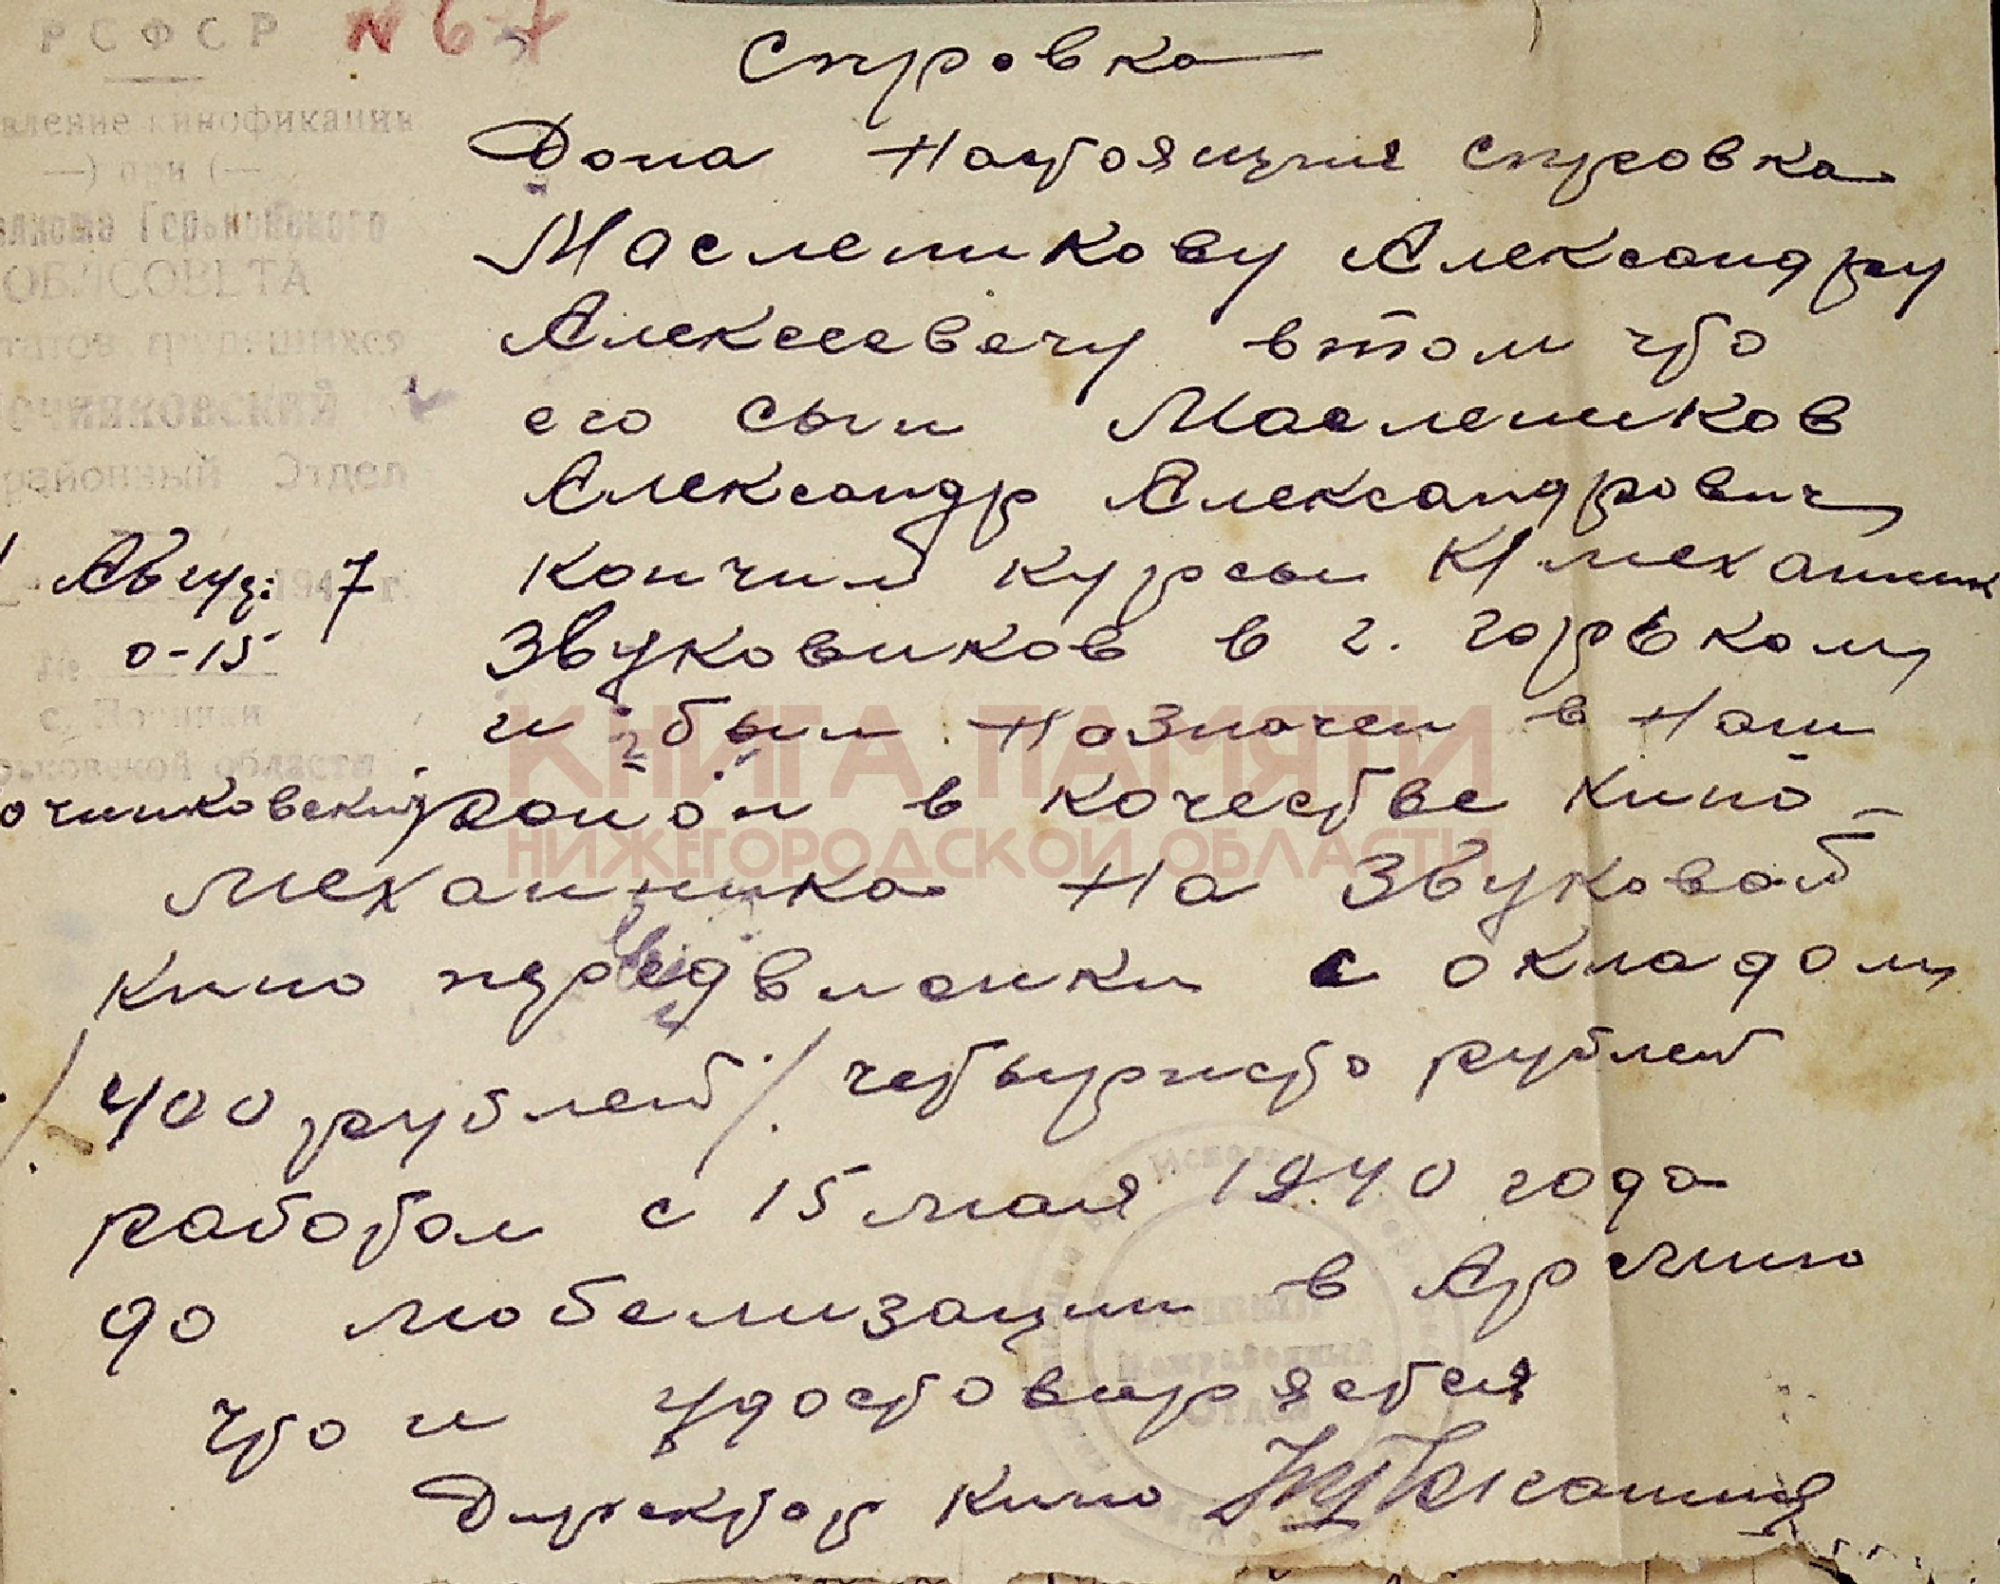 РСФСР
№ 67
вление кинофикации
—) при (—
Горьковского
ОБЛСОВЕТА
татов трудящихся
очинковский
районный Отдел
Август: 1947 г.
№ 0-15
с. Починки
рьковской области
Справка
Дона Настоящия справка
Масленикову Александру
Алексеевечу втом что
его сын Маслеников
Александр Александрович
кончил курсы К/механик
Звуковиков в г. горьком,
и был назначен в Наш
очинковский район в качестве кино-
механника на Звуковой
кино передвижки с окладом
/400 рублей/. четыриста рублей
работал с 15 мая 1940 года
до мобелизации в Армию
что и удостовиряется
Директор кино
КНИГА ПАМЯТИ
НИЖЕГОРОДСКОЙ ОБЛАСТИ
Отдел